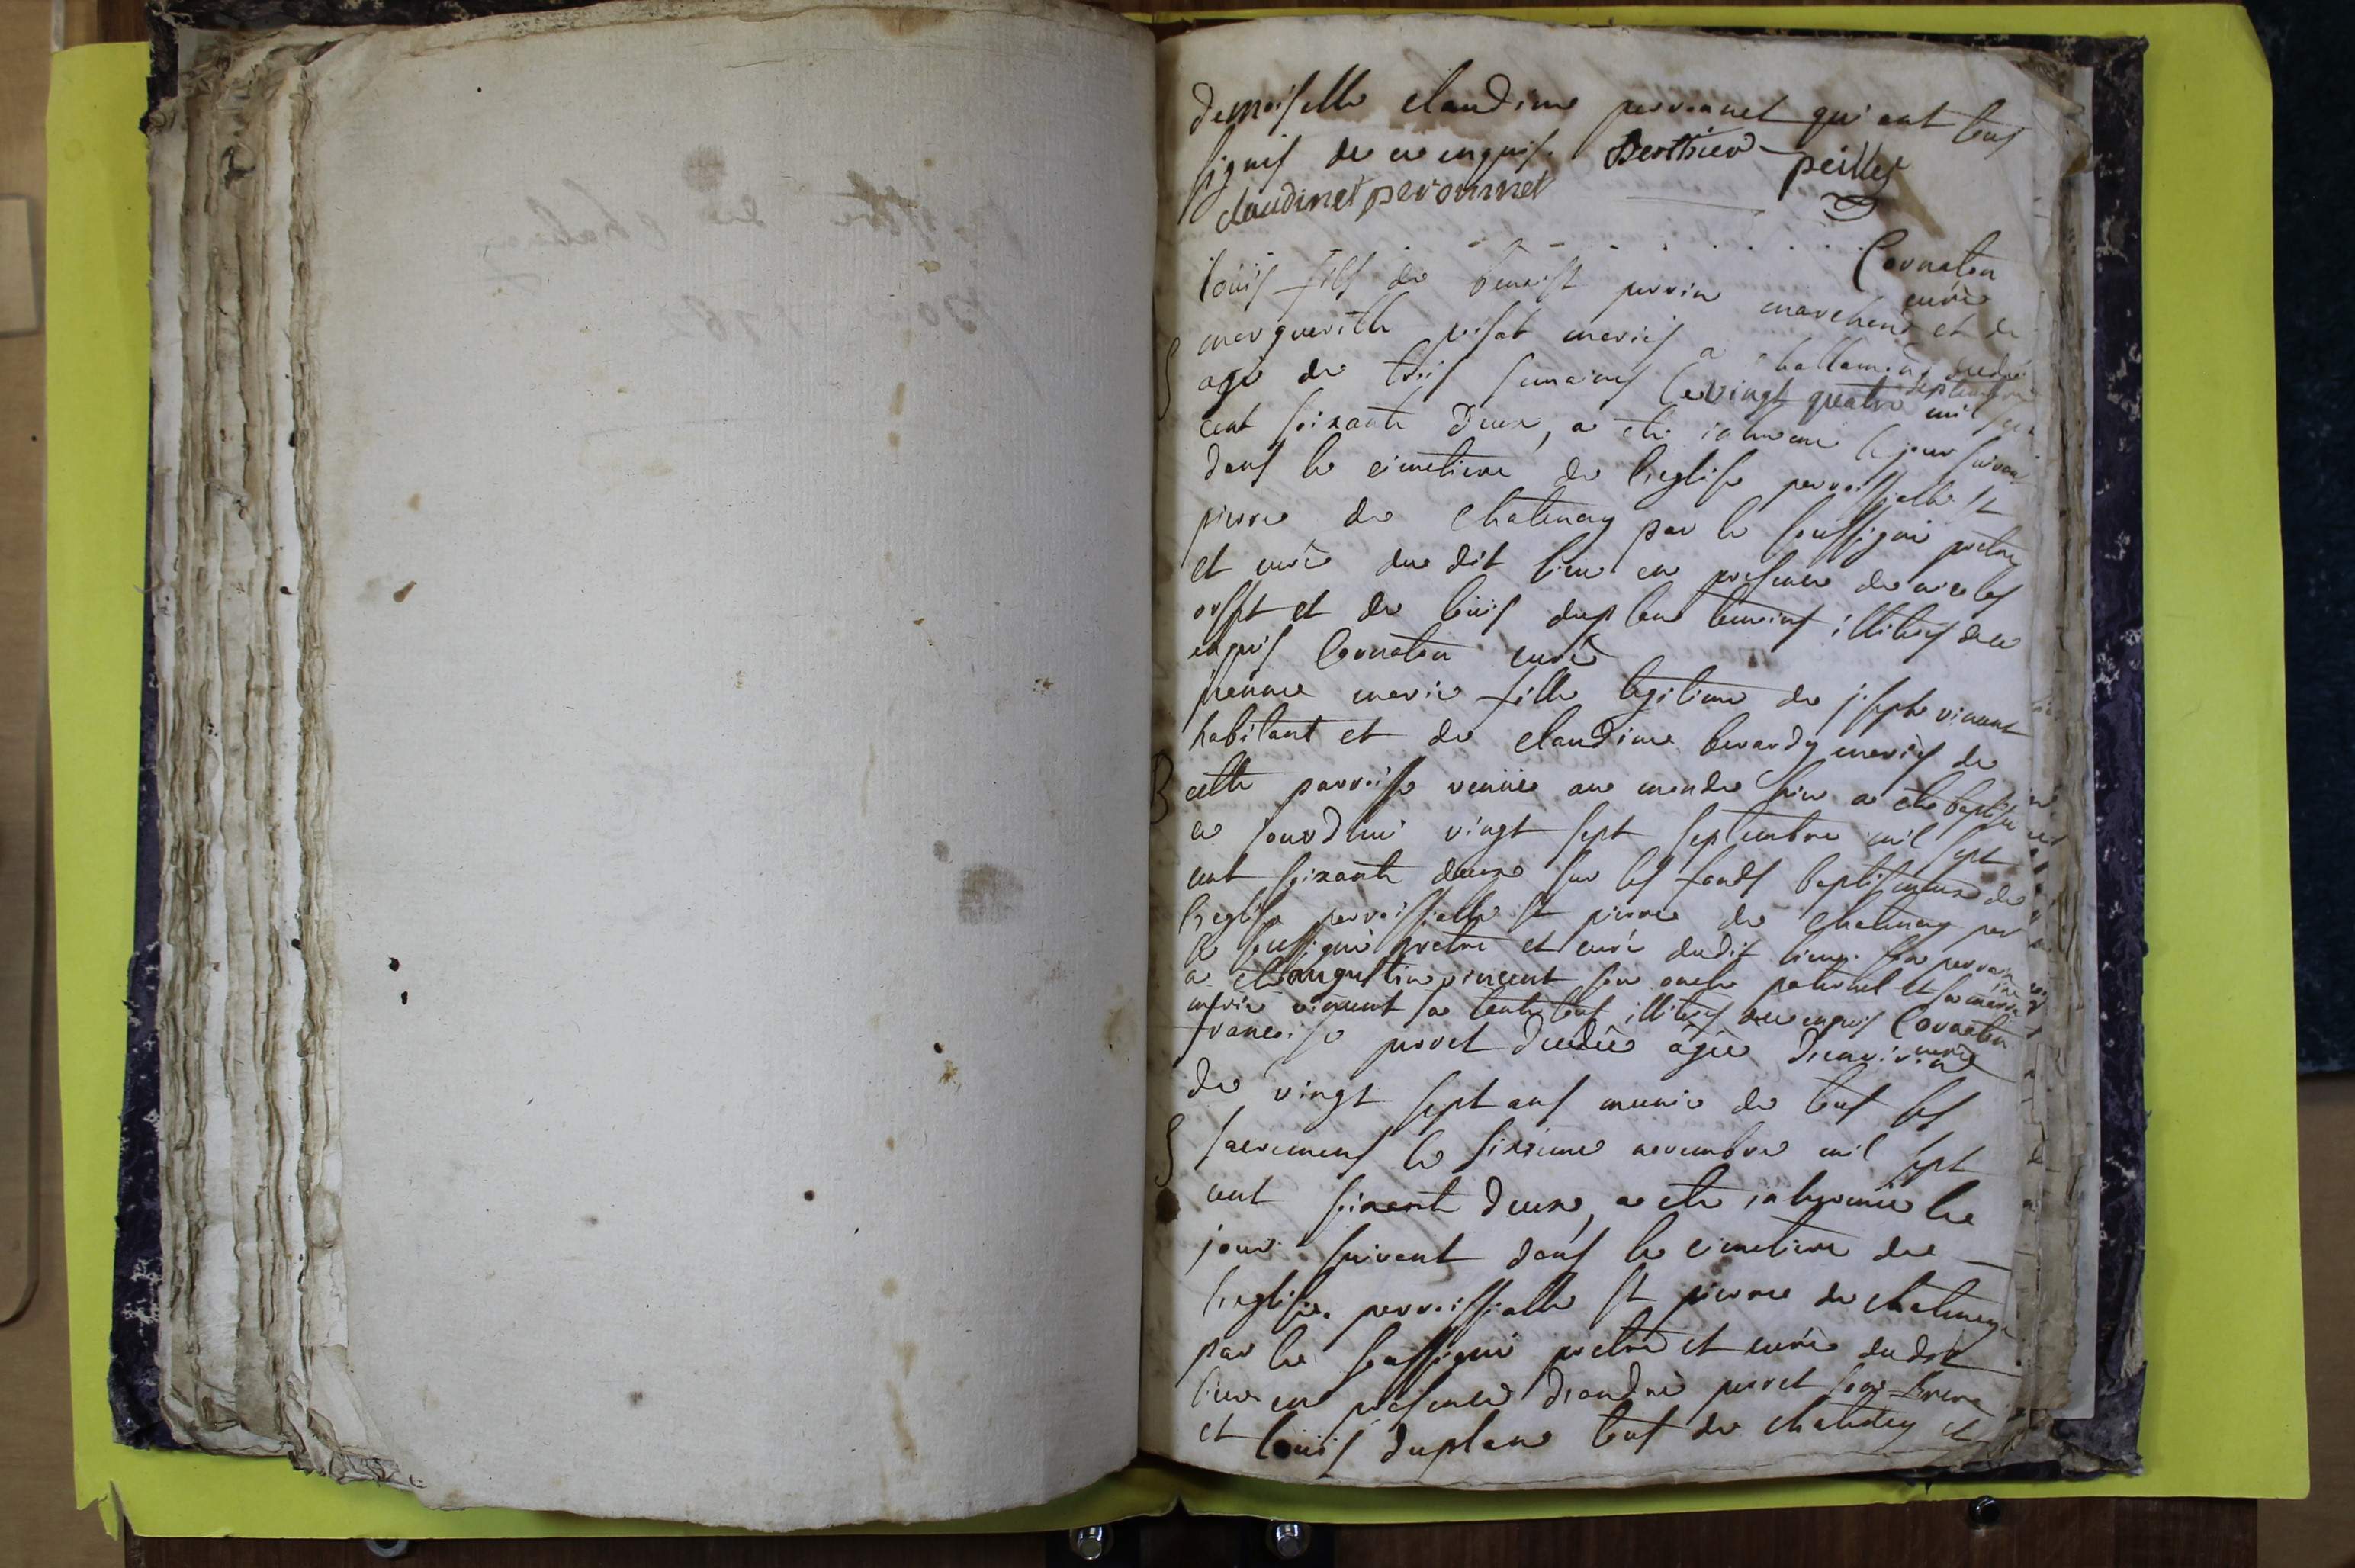 demoiselle claudine peronnet qui ont tous
signes de ce enquis. Berthier peillet
claudinet peronnet
Cornaton
curé
louis fils de benoist perrin marchand et de
margueritte pisat mariés a challamon decedé
agé de trois semaines le vingt quatre septembre mil sept
cent soixante deux, a eté inhumé le jour suivant
dans le cimetiere de l'eglise parroissialle st
pierre de Chatenay par le soussigné pretre
et curé du dit lieu en presence de nicolas
et de louis duplan temoins illiterés de ce
enquis Cornaton curé
jeanne marie fille legitime de joseph vincent
habitant et de claudine berardy mariés de
cette parroisse venüe au monde hier a eté baptisée
ce jourd'hui vingt sept septembre mil sept
cent soixante deux sur les fonds baptismaux de
l'eglise parroissialle st pierre de Chatenay par
le soussigné pretre et curé dudit lieu. son parrain
a eté augustin vincent son oncle paternel et sa marraine
marie vincent sa tante tous illiterés de ce enquis Cornaton
curé
francoise perret decedée agée d'environ
de vingt sept ans munie de tous les
sacremens le sixieme novembre mil sept
cent soixante deux, a eté inhumée le
jour suivant dans le cimetiere de
l'eglise parroissialle st pierre de chatenay
par le soussigné pretre et curé dudit
lieu en presence d'andré perret son frere
et louis duplan tous de chatenay et
S
B
S